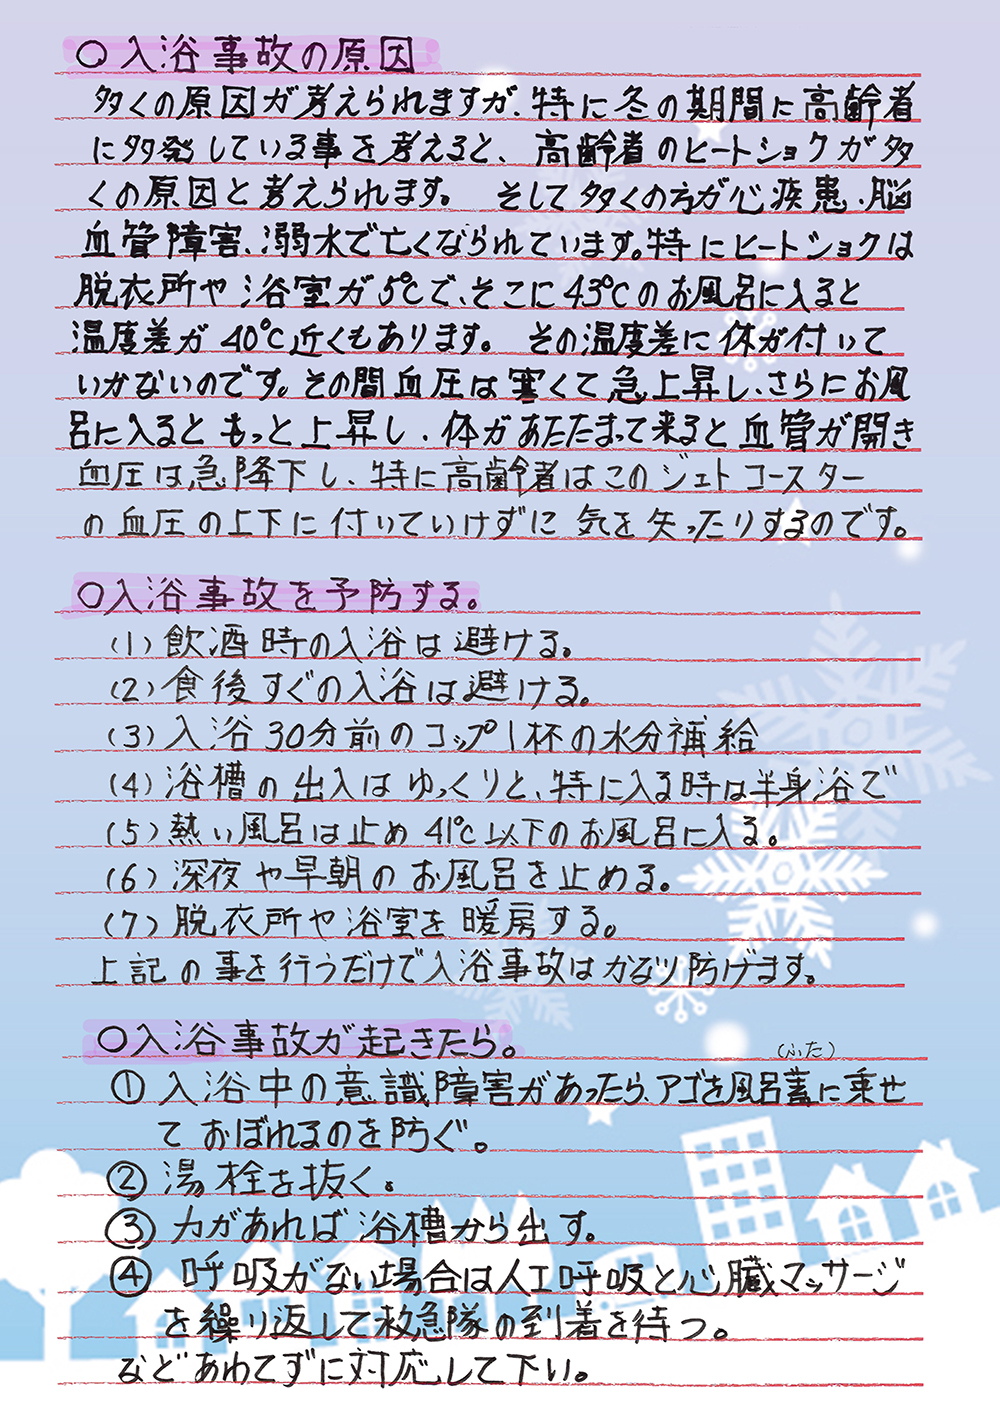 ○入浴事故の原因
多くの原因が考えられますが、特に冬の期間に高齢者
に多発している事を考えると、高齢者のヒートショクが多
くの原因と考えられます。 そして多くの方が心疾患、脳
血管障害、溺水で亡くなられています。特にヒートショクは
脱衣所や浴室が5℃で、そこに43℃のお風呂に入ると
温度差が40℃近くもあります。 その温度差に体が付いて
いかないのです。その間血圧は寒くて急上昇し、さらにお風
呂に入るともっと上昇し、体があたたまって来ると血管が開き
血圧は急降下し、特に高齢者はこのジェトコースター
の血圧の上下に付いていけずに気を失ったりするのです。
○入浴事故を予防する。
(1)飲酒時の入浴は避ける。
(2)食後すぐの入浴は避ける。
(3)入浴30分前のコップ1杯の水分補給
(4)浴槽の出入はゆっくりと、特に入る時は半身浴で
(5)熱い風呂は止め41℃以下のお風呂に入る。
(6)深夜や早朝のお風呂を止める。
(7)脱衣所や浴室を暖房する。
上記の事を行うだけで入浴事故はかなり防げます。
○入浴事故が起きたら。
(ふた)
①入浴中の意識障害があったら、アゴを風呂蓋に乗せ
ておぼれるのを防ぐ。
②湯栓を抜く。
③力があれば浴槽から出す。
④呼吸がない場合は人工呼吸と心臓マッサージ
を繰り返して救急隊の到着を待つ。
などあわてずに対応して下い。